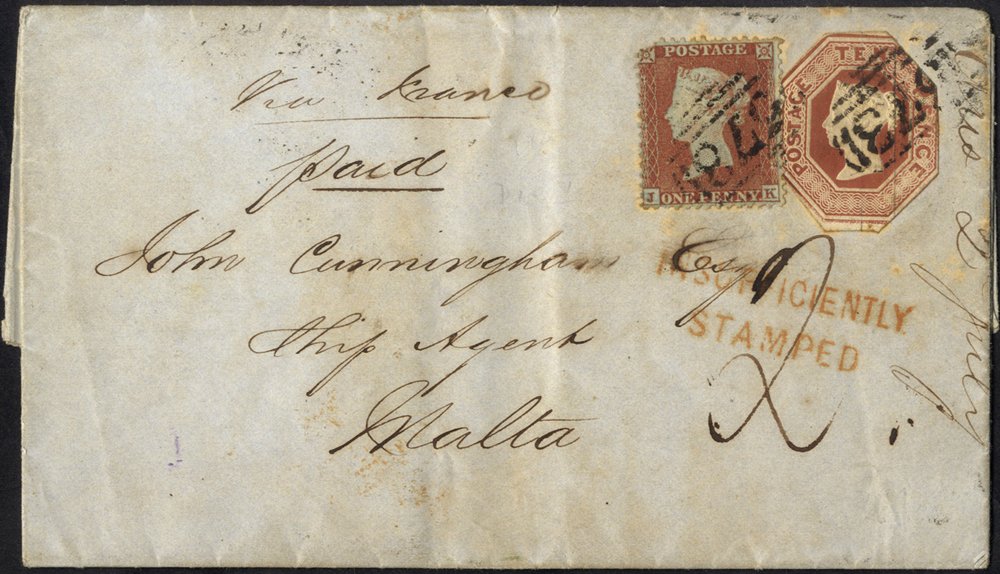 Via France
paid
John Cunningham Esq
Ship Agent
Malta
POSTAGE
J ONE PENNY K
POSTAGE TEN PENCE
INSUFFICIENTLY
STAMPED
2
July